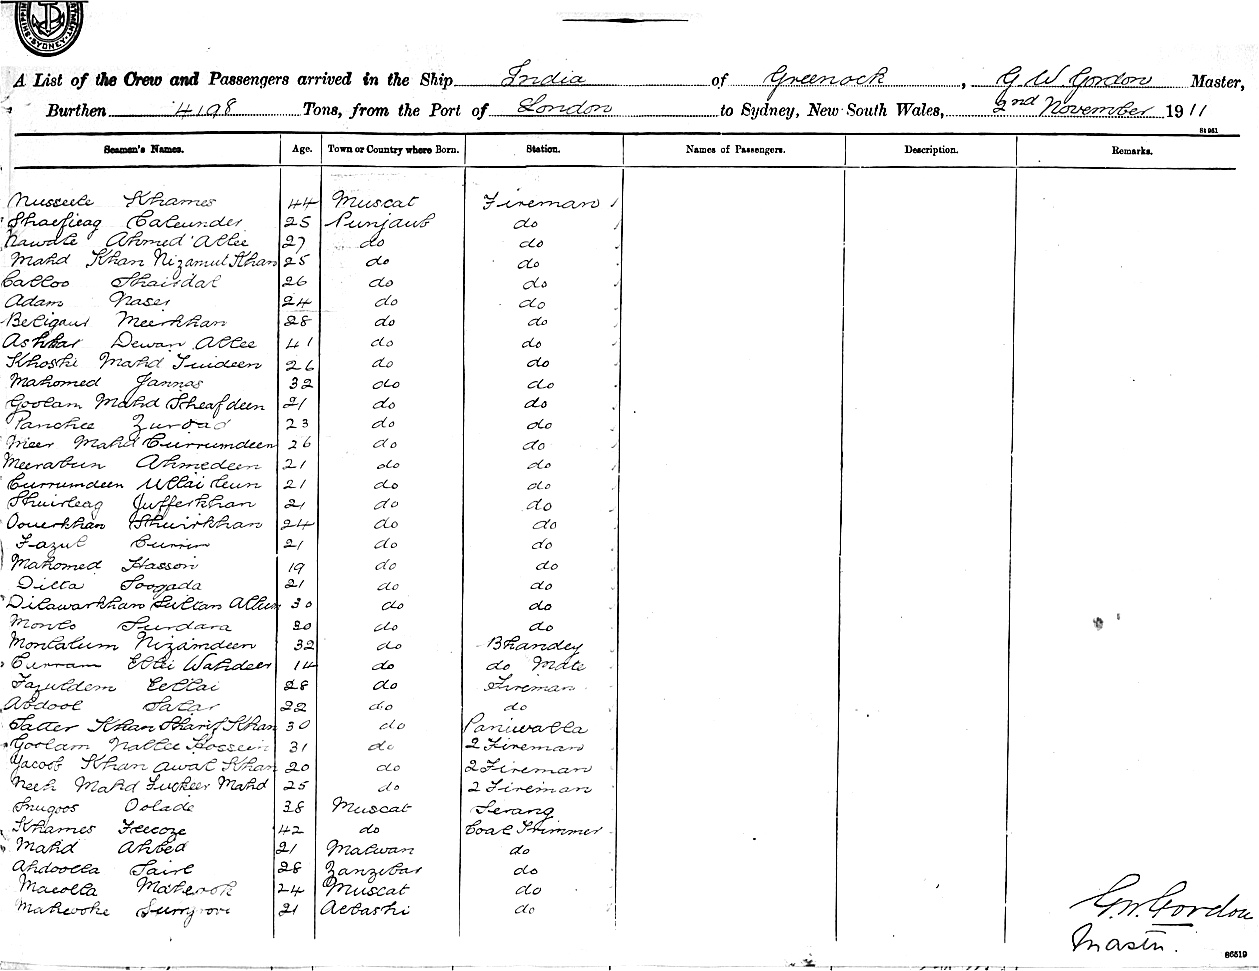 SHIPPING SYDNEY
A List of the Crew and Passengers arrived in the Ship India of Greenock, G W Gordon Master,
Burthen 4198 Tons, from the Port of London to Sydney, New South Wales, 2nd November 1911
S1961
Seamen's Names. Age. Town or Country where Born. Station. Names of Passengers. Description. Remarks.
Khames 44 Muscat Fireman
25 Punjaub do
Ahmed Allee 27 do do
Mahd Khan Nizamul Khan 25 do do
Calloo Shairdal 26 do do
Adam Naser 24 do do
Meerkhan 28 do do
Ashkar Dewan Allee 41 do do
Khoshi Mahd 26 do do
Mahomed Jannas 32 do do
Goolam Mahd Sheafdeen 21 do do
Panchee 23 do do
Meer Mahd Currumdeen 26 do do
Meerabun Ahmedeen 21 do do
Currumdeen 21 do do
Jufferkhan 21 do do
Oouerkhan Shuirkhan 24 do do
Fazul 21 do do
Mahomed Hasson 19 do do
Ditta Soogada 21 do do
Dilawarkhan Sultan 30 do do
Surdara 20 do do
Nizamdeen 32 do Bhandey
Curram Ellai Wahdeen 14 do do Mate
Fazuldeen Eellai 28 do Fireman
Abdool Satar 22 do do
Satter Khan Sharif Khan 30 do Paniwalla
Goolam Nallee Hossein 31 do 2 Fireman
Yacoob Khan Awal Khan 20 do 2 Fireman
Mahd Fuckeer Mahd 25 do 2 Fireman
Oolade 38 Muscat Serang
Khames Feecoze 42 do Coal Trimmer
Mahd Ahbed 21 Malwan do
Ahdoolla 28 Zanzibar do
Macolla 24 Muscat do
21 do
G.W. Gordon
Master.
86519